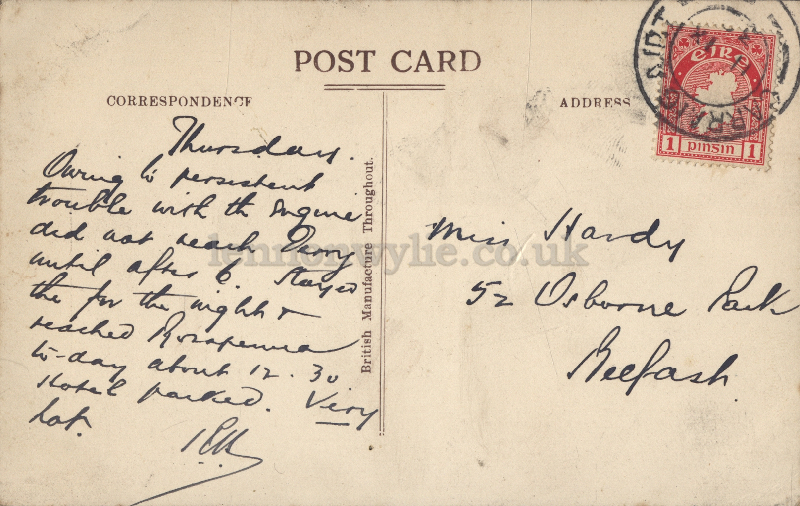 POST CARD
CORRESPONDENCE
ADDRESS
EIRE
1 PINSIN 1
Thursday.
Owing to persistent
trouble with the engine
did not reach Derry
until after 6. Stayed
the for the night &
reached Rosapenna
to-day about 12.30
Hotel packed. Very
hot.
British Manufacture Throughout.
Miss Hardy
52 Osborne Park
Belfast
lennonwylie.co.uk